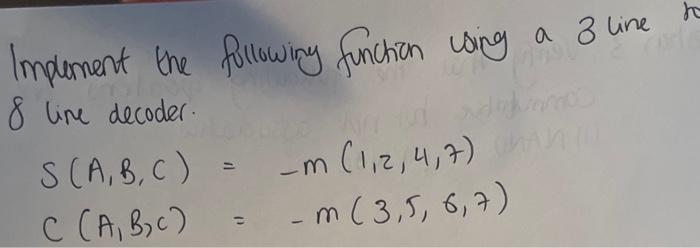 Implement the following function using a 3 line to
8 line decoder.
S(A,B,C) = -m(1,2,4,7)
C (A,B,C) = -m(3,5,6,7)